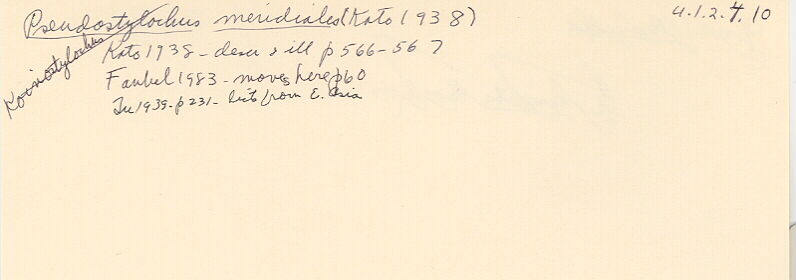 Pseudostylochus meridiales (Kato 1938) 4.1.2.4.10
Koinostylochus
Kato 1938 - descr & ill p 566-567
Faubel 1983 - moves here p60
1939 - p 231 - lists from E. Asia